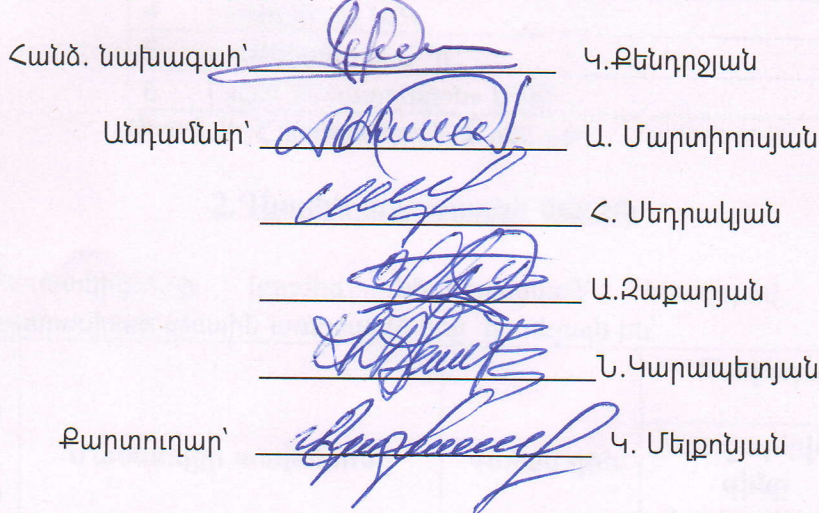 Հանձ. նախագահ՝ Կ.Քենդրջյան
Անդամներ՝ Ա. Մարտիրոսյան
Հ. Սեդրակյան
Ա.Զաքարյան
Ն.Կարապետյան
Քարտուղար՝ Կ. Մելքոնյան